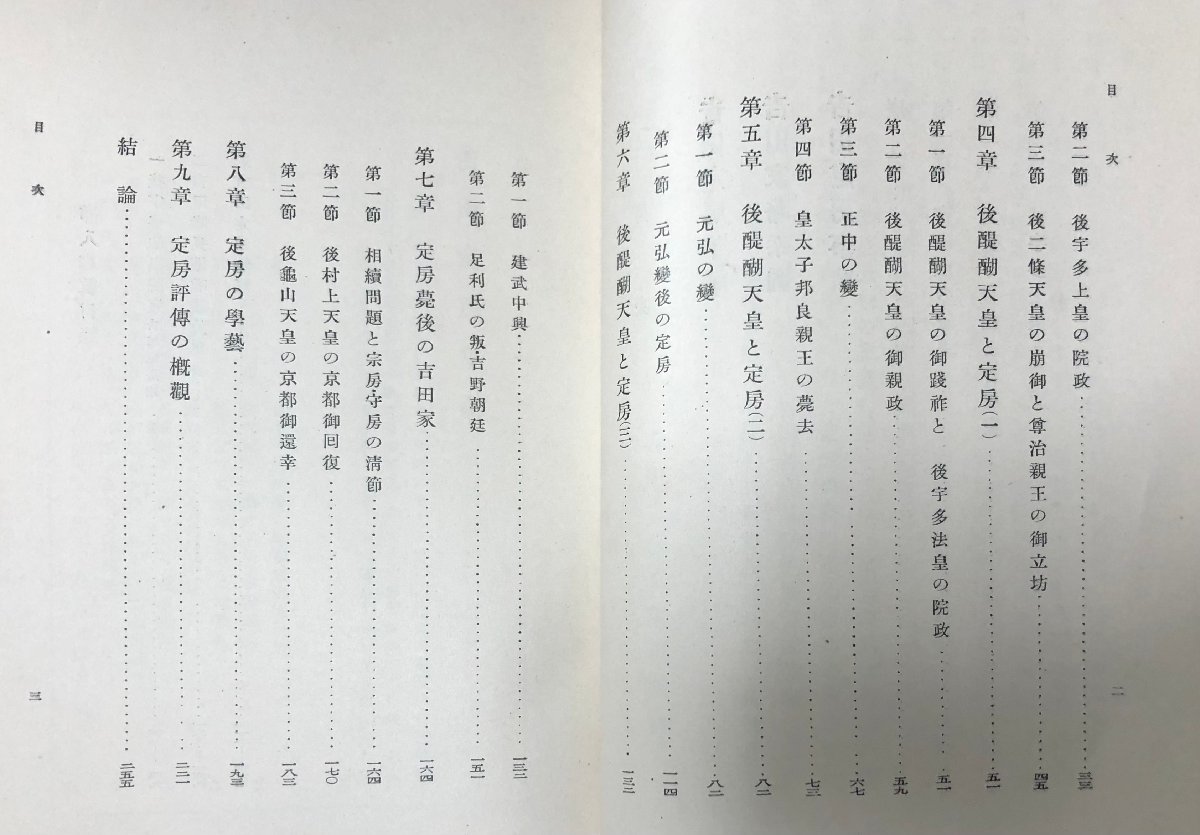 目次
第二節 後宇多上皇の院政……三三
第三節 後二條天皇の崩御と尊治親王の御立坊……四五
第四章 後醍醐天皇と定房(一)……五一
第一節 後醍醐天皇の御踐祚と 後宇多法皇の院政……五一
第二節 後醍醐天皇の御親政……五九
第三節 正中の變……六七
第四節 皇太子邦良親王の薨去……七三
第五章 後醍醐天皇と定房(二)……八二
第一節 元弘の變……八二
第二節 元弘變後の定房……一一四
第六章 後醍醐天皇と定房(三)……一三二
二
第一節 建武中興……一三二
第二節 足利氏の叛・吉野朝廷……一五一
第七章 定房薨後の吉田家……一六四
第一節 相續問題と宗房・守房の淸節……一六四
第二節 後村上天皇の京都御回復……一七〇
第三節 後龜山天皇の京都御還幸……一八三
第八章 定房の學藝……一九三
第九章 定房評傳の概觀……二二一
結論……二五五
目次
三